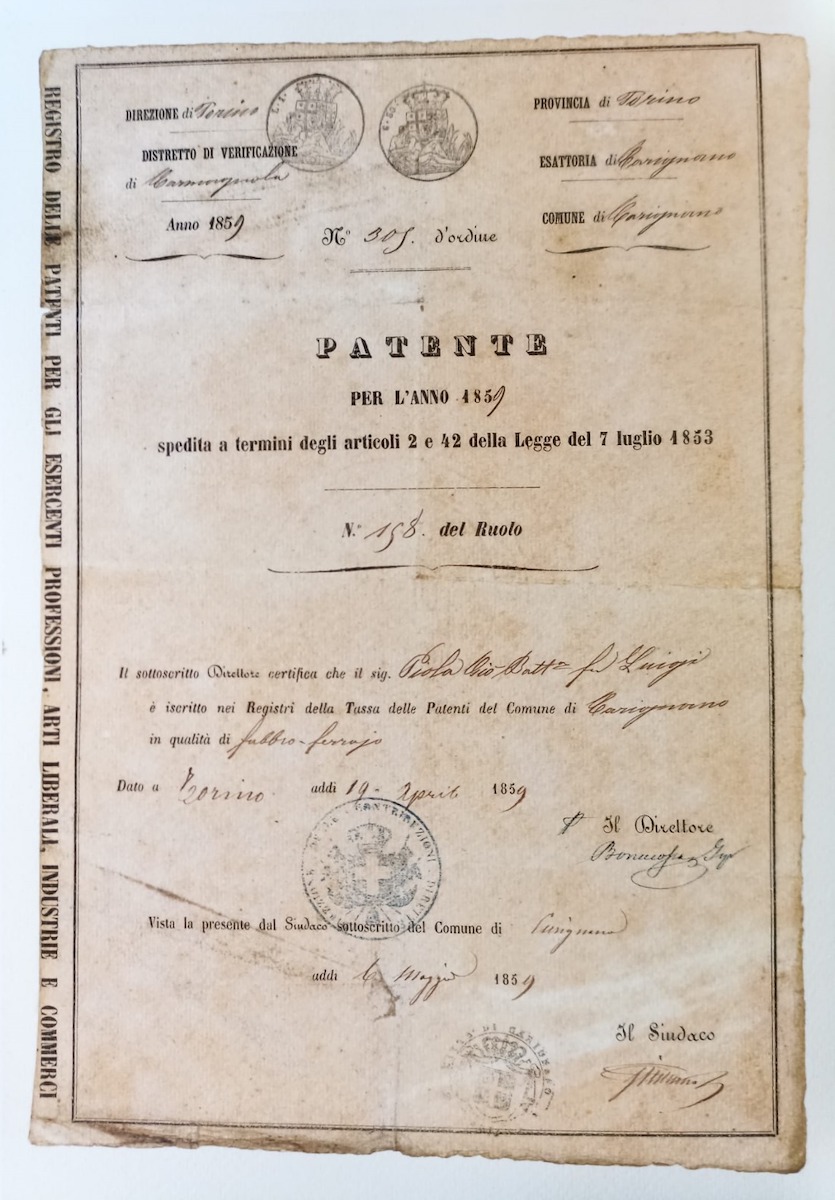 REGISTRO DELLE PATENTI PER GLI ESERCENTI PROFESSIONI, ARTI LIBERALI, INDUSTRIE E COMMERCI
DIREZIONE di Torino
DISTRETTO DI VERIFICAZIONE
di Carmagnola
Anno 1859
PROVINCIA di Torino
ESATTORIA di Carignano
COMUNE di Carignano
N.º 305. d'ordine
PATENTE
PER L'ANNO 1859
spedita a termini degli articoli 2 e 42 della Legge del 7 luglio 1853
N.º 158. del Ruolo
Il sottoscritto Direttore certifica che il sig. Piola Gio Batt.ª fu Luigi
è iscritto nei Registri della Tassa delle Patenti del Comune di Carignano
in qualità di fabbro-ferrajo
Dato a Torino addì 19 - Aprile 1859
CONTRIBUZIONI DIRETTE
Il Direttore
Vista la presente dal Sindaco sottoscritto del Comune di Carignano
addì 6 Maggio 1859
Il Sindaco
DI CARIGNANO